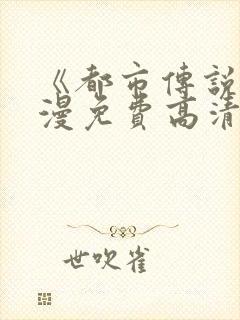 《都市傳說
漫免費高清
世吹雀